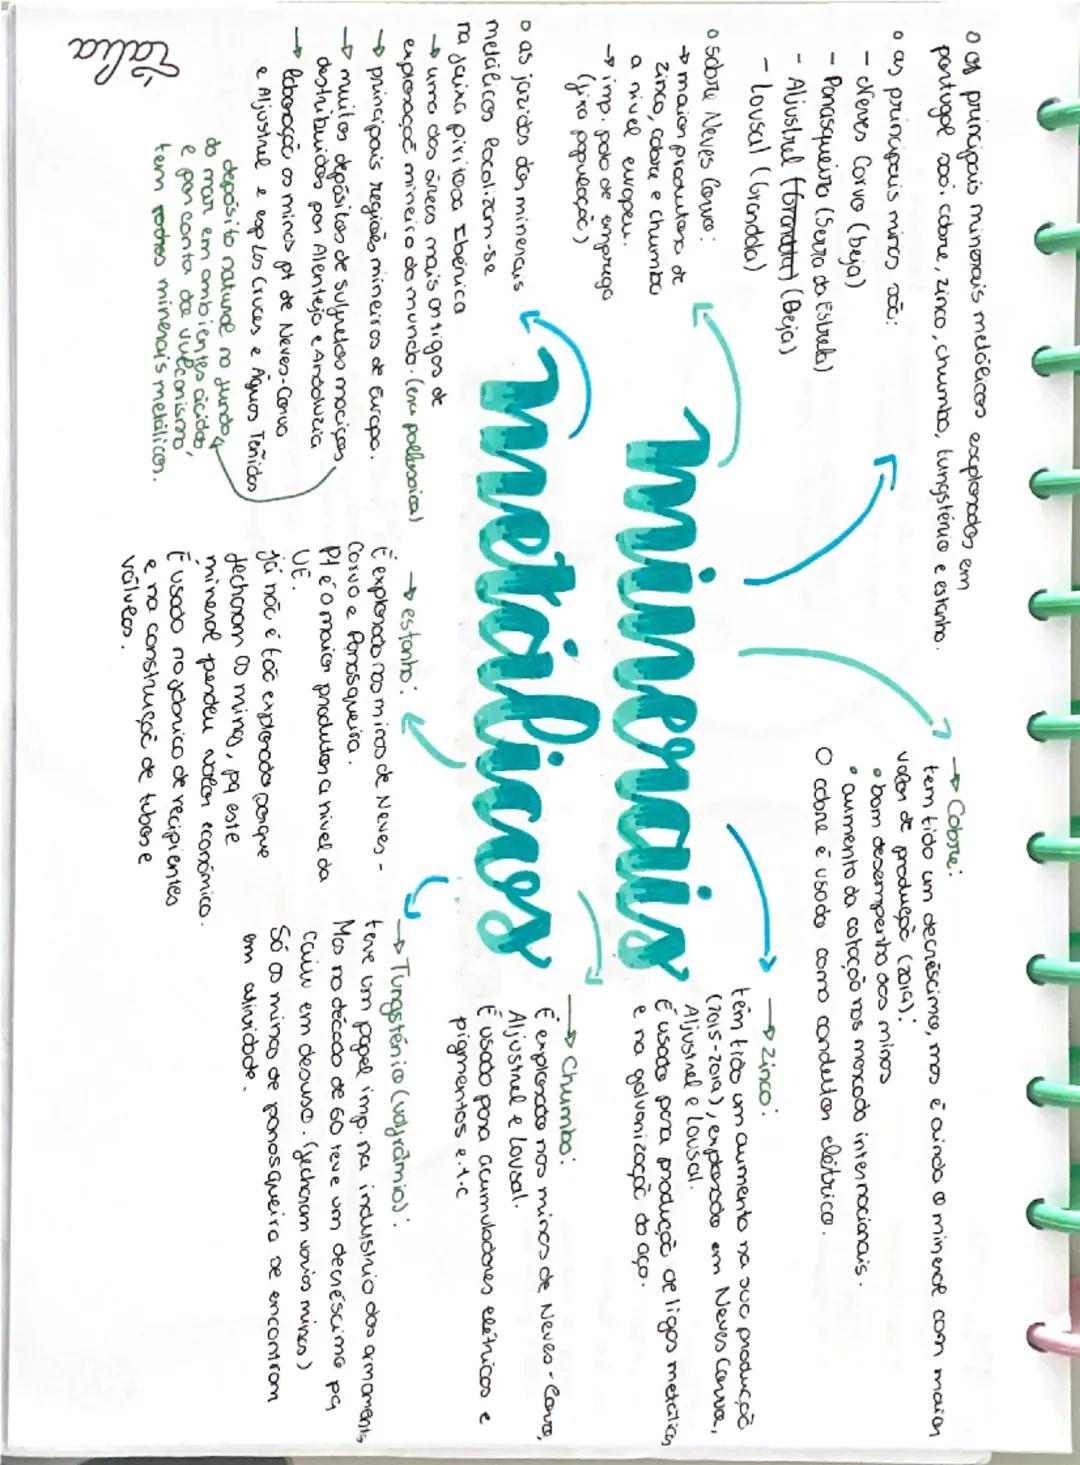 o os principais minerais metálicos explorados em
portugal são: cobre, zinco, chumbo, tungsténio e estanho.
o as principais minas são:
- Neves Corvo (beja)
- Panasqueira (Serra da Estrela)
- Aljustrel (Beja)
- Lousal (Grandola)
o sobre Neves Corvo:
→ maior produtora de
zinco, cobre e chumbo
a nivel europeu.
→ imp. polo de emprego
(fixa população)
o as jazidas dos minerais
metálicos localizam-se
na faixa piritosa Ibérica
→ uma das áreas mais antigas de
exploração mineira do mundo. (era paleosoica)
→ principais regiões mineiras da Europa.
→ muitos depósitos de sulfuretos maciços
destribuidos por Alentejo e Andaluzia
→ laboração as minas pt de Neves-Corvo
e Aljustrel e esp Las Cruces e Aguas Teñidas
depósito natural no fundo
do mar em ambientes ácidos,
e por conta do vulcanismo,
tem rochas minerais metálicas.
Tália
minerais
metálicos
→ Cobre:
tem tido um decréscimo, mas é ainda o mineral com maior
valor de produção (2019):
• bom desempenho das minas
• aumento da cotação nos mercado internacionais.
O cobre é usado como condutor elétrico.
→ Zinco:
têm tido um aumento na sua produção
(2015-2019), explorado em Neves Corvo,
Aljustrel e Lousal.
É usado para produção de ligas metálicas
e na galvanização do aço.
→ Chumbo:
É explorado nas minas de Neves-Corvo,
Aljustrel e Lousal.
É usado para acumuladores elétricos e
pigmentos e.t.c
→ estanho:
É explorado nas minas de Neves-
Corvo e Panasqueira.
Pt é o maior produtor a nivel da
UE.
Já não é tão explorado porque
fecharam as minas, pq este
mineral perdeu valor económico.
É usado no fabrico de recipientes
e na construção de tubos e
válvulas.
→ Tungsténio (volfrâmio):
teve um papel imp. na industria dos armamentos,
Mas na década de 60 teve um decréscimo pq
caiu em desuso. (fecharam varias minas)
Só as minas de panasqueira se encontram
em atividade.